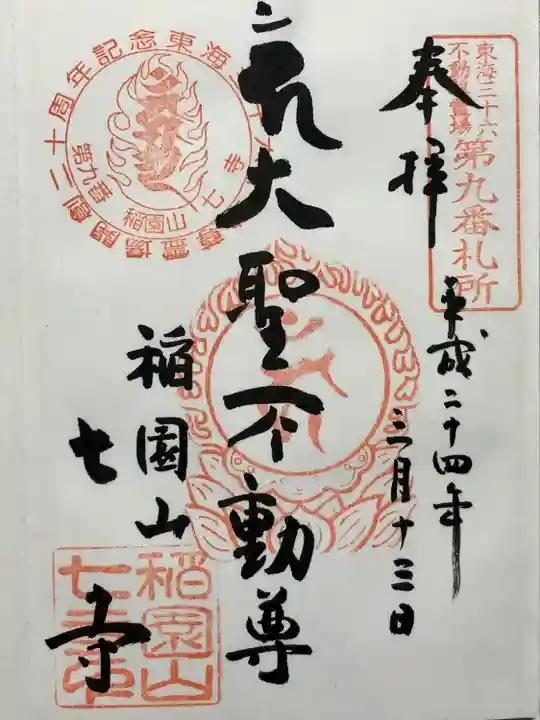 東海三十六
不動尊霊場
第九番札所
奉拝
平成二十四年
三月十三日
大聖不動尊
稲園山
七寺
二十周年記念東海三十六不動尊霊場開創
第九番
稲園山
七寺
稲園山
七寺